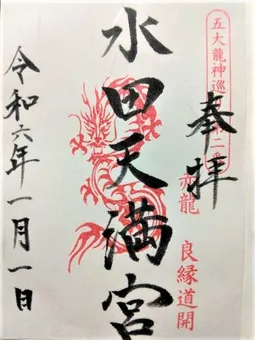 五大龍神巡
奉拝
赤龍
良縁道開
水田天満宮
令和六年一月一日